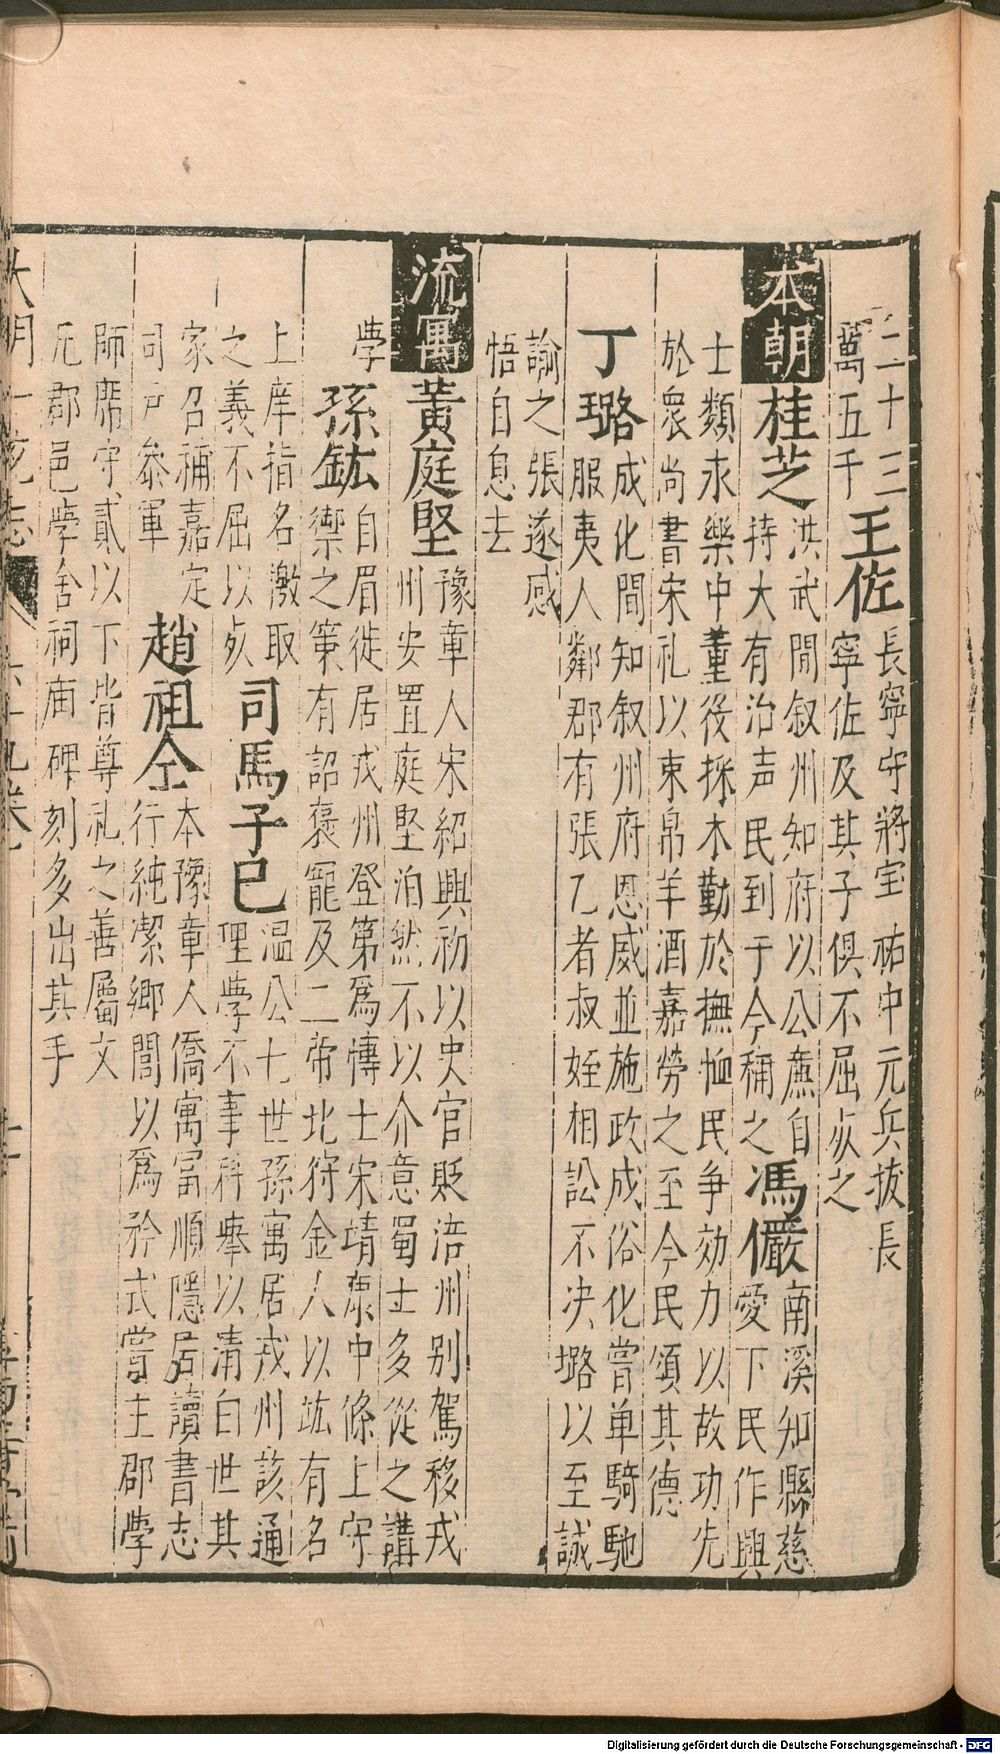 二十三
萬五千
王佐
長寧守將宝祐中元兵拔長
寧佐及其子俱不屈死之
本朝
桂芝
洪武間叙州知府以公廉自
持大有治声民到于今稱之
馮儼
南溪知縣慈
愛下民作興
士類永樂中董役採木勤於撫恤民争効力以故功先
於衆尚書宋礼以束帛羊酒嘉勞之至今民頌其德
丁璐
成化間知叙州府恩威並施政成俗化嘗单騎馳
服夷人鄰郡有張乙者叔姪相訟不决璐以至誠
諭之張遂感
悟自息去
流寓
黄庭堅
豫章人宋紹興初以史官貶涪州别駕移戎
州安置庭堅泊然不以介意蜀士多從之講
學
孫鈜
自眉徙居戎州登第爲慱士宋靖康中條上守
禦之策有詔褒寵及二帝北狩金人以竑有名
上庠指名激取
之義不屈以死
司馬子巳
温公七世孫寓居戎州該通
理學不事科舉以清白世其
家召補嘉定
司户叅軍
趙祖仝
本豫章人僑寓富順隱居讀書志
行純潔鄉閭以爲矜式嘗主郡學
師席守貳以下皆尊礼之善屬文
凡郡邑學舍祠庙碑刻多出其手
大明一
志
Digitalisierung gefördert durch die Deutsche Forschungsgemeinschaft - DFG